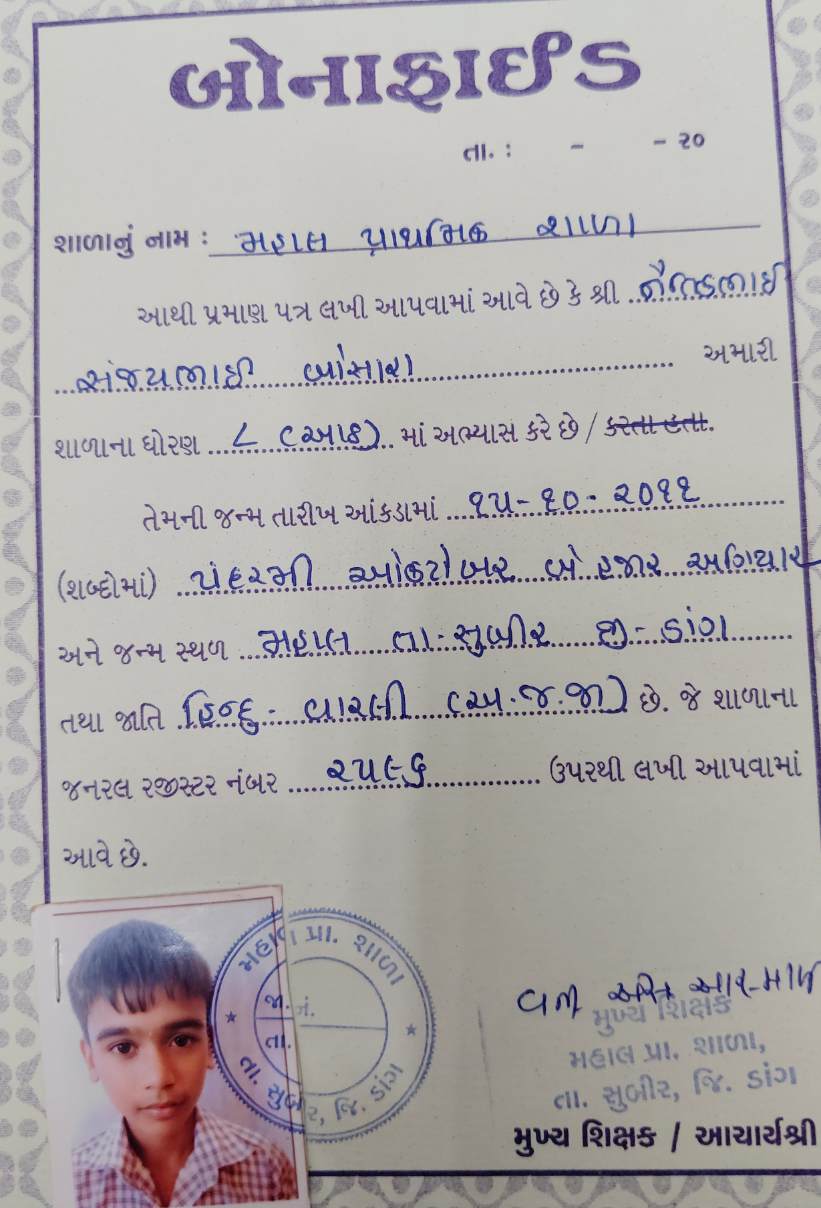 બોનાફાઈડ
તા. : - - ૨૦
શાળાનું નામ : મહાલ પ્રાથમિક શાળા
આથી પ્રમાણ પત્ર લખી આપવામાં આવે છે કે શ્રી
સંજયભાઈ અમારી
શાળાના ધોરણ ૮ (આઠ) માં અભ્યાસ કરે છે / કરતા હતા.
તેમની જન્મ તારીખ આંકડામાં ૧૫-૧૦-૨૦૧૧
(શબ્દોમાં) પંદરમી ઓકટોબર બે હજાર અગિયાર
અને જન્મ સ્થળ મહાલ તા-સુબીર જી-ડાંગ
તથા જાતિ હિન્દુ - વારલી (અ.જ.જા) છે. જે શાળાના
જનરલ રજીસ્ટર નંબર ૨૫૯૬ ઉપરથી લખી આપવામાં
આવે છે.
મહાલ પ્રા. શાળા
જા. નં.
તા.
તા. સુબીર, જિ. ડાંગ
મુખ્ય શિક્ષક
મહાલ પ્રા. શાળા,
તા. સુબીર, જિ. ડાંગ
મુખ્ય શિક્ષક / આચાર્યશ્રી